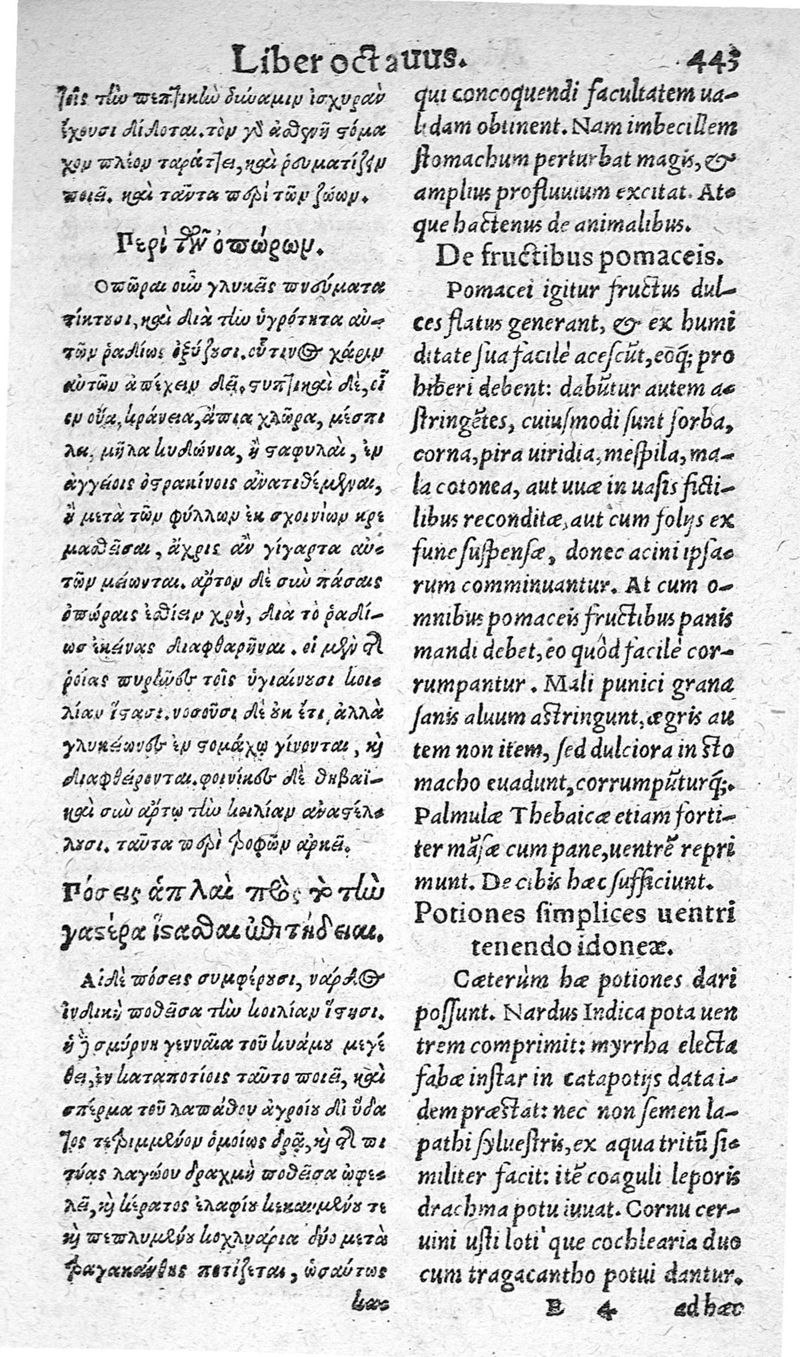 Liber octauus. 443
τοῖς τὴν πεπτικὴν δύναμιν ἰσχυρὰν
ἔχουσι δίδοται. τὸν γὸ ἀσθενῆ στόμα
χον πλέον ταράττει, καὶ ῥευματίζειν
ποιεῖ. καὶ ταῦτα περὶ τῶν ζώων.
Περὶ τῶν ὀπώρων.
Οπῶραι οὖν γλυκεῖς πνεύματα
τίκτουσι, καὶ διὰ τὴν ὑγρότητα αὐ-
τῶν ῥαδίως ὀξύζουσι. οὗτινος χάριν
αὐτῶν ἀπέχειν δεῖ. στυπτικαὶ δὲ, εἶ
εν οὖα, κράνεια, ἄπια χλῶρα, μέσπι
λα, μῆλα κυδώνια, ἢ σαφυλαὶ, ἐν
ἀγγείοις ὀστρακίνοις ἀνατιθέμεναι,
ἢ μετὰ τῶν φύλλων ἐκ σχοινίων κρε
μασθεῖσαι, ἄχρις ἂν γίγαρτα αὐ-
τῶν μείωνται. ἄρτον δὲ σὺν πάσαις
ὀπώραις ἐσθίειν χρὴ, διὰ τὸ ῥαδί-
ως ἐκείνας διαφθαρῆναι. οἱ μὲν τῆς
ῥοίας πυρῆνες τοῖς ὑγιαίνουσι κοι-
λίαν ἱστᾶσι. νοσοῦσι δὲ οὐκ ἔτι, ἀλλὰ
γλυκέωνες ἐν στομάχῳ γίνονται, καὶ
διαφθείρονται. φοίνικες δὲ θηβαϊ-
καὶ σὺν ἄρτῳ τὴν κοιλίαν ἀναστέλ-
λουσι. ταῦτα περὶ τροφῶν ἀρκεῖ.
Πόσεις ἁπλαῖ πρὸς τὸ τὴν
γαστέρα ἵστασθαι ἐπιτήδειαι.
Αἱ δὲ πόσεις συμφέρουσι, νάρδος
ἰνδικὴ ποθεῖσα τὴν κοιλίαν ἵστησι.
ἡ δὲ σμύρνη γενναῖα τοῦ κυάμου μεγέ
θει, ἐν καταποτίοις ταὐτὸ ποιεῖ, καὶ
σπέρμα τοῦ λαπάθου ἀγρίου δι' ὕδα
τος τετριμμένον ὁμοίως δρᾷ, καὶ τῆς πι
τύας λαγώου δραχμὴ ποθεῖσα ὠφε-
λεῖ, καὶ κέρατος ἐλαφίου κεκαυμένου τε
καὶ πεπλυμένου κοχλυάρια δύο μετὰ
τραγακάνθης ποτίζεται, ὡσαύτως
καὶ
qui concoquendi facultatem ua-
lidam obtinent. Nam imbecillem
stomachum perturbat magis, &
amplius profluuium excitat. At-
que hactenus de animalibus.
De fructibus pomaceis.
Pomacei igitur fructus dul-
ces flatus generant, & ex humi
ditate sua facilè acescūt, eoq; pro
hiberi debent: dabūtur autem a-
stringētes, cuiusmodi sunt sorba,
corna, pira uiridia, mespila, ma-
la cotonea, aut uuæ in uasis ficti-
libus reconditæ, aut cum folijs ex
fune suspensæ, donec acini ipsa-
rum comminuantur. At cum o-
mnibus pomaceis fructibus panis
mandi debet, eo quòd facile cor-
rumpantur. Mali punici grana
sanis aluum astringunt, ægris au
tem non item, sed dulciora in sto
macho euadunt, corrumpūturq;.
Palmulæ Thebaicæ etiam forti-
ter māsæ cum pane, uentrē repri
munt. De cibis hæc sufficiunt.
Potiones simplices uentri
tenendo idoneæ.
Cæterùm hæ potiones dari
possunt. Nardus Indica pota uen
trem comprimit: myrrha electa
fabæ instar in catapotijs data i-
dem præstat: nec non semen la-
pathi syluestris, ex aqua tritū si-
militer facit: itē coaguli leporis
drachma potu iuuat. Cornu cer-
uini usti loti'que cochlearia duo
cum tragacantho potui dantur.
E 4 ad hæc